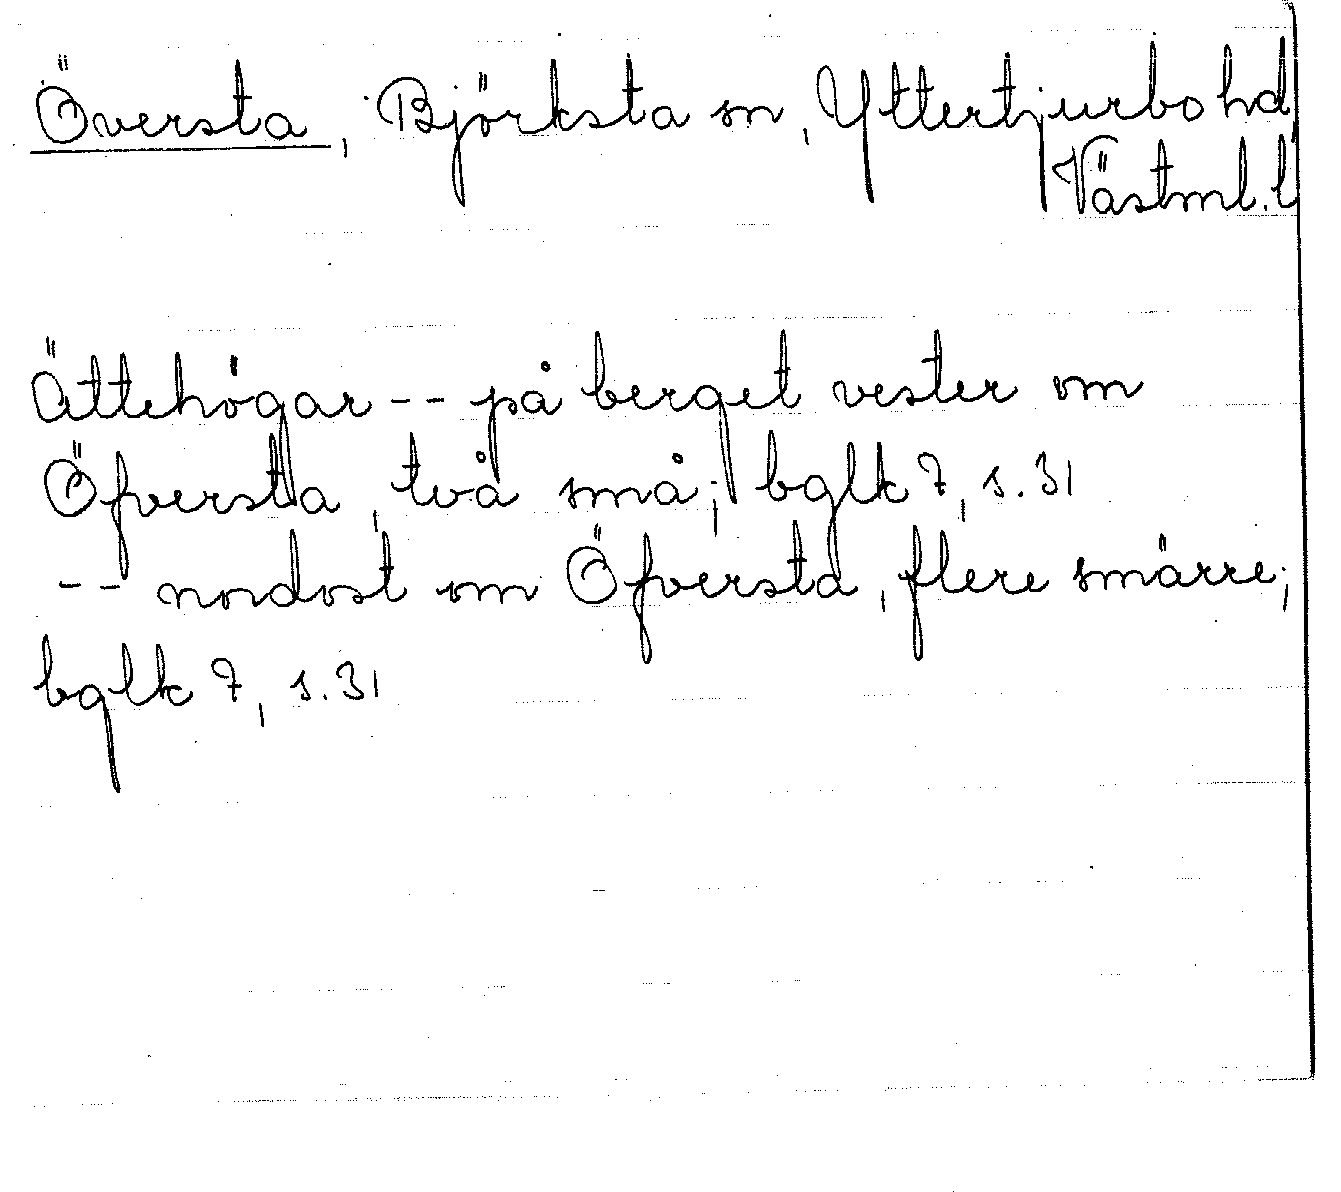 Översta, Björksta sn, Yttertjurbo hd
Västml.l
Ättehögar -- på berget vester om
Öfversta, två små; bglk 7, s. 31
-- nordost om Öfversta, flere smärre;
bglk 7, s. 31